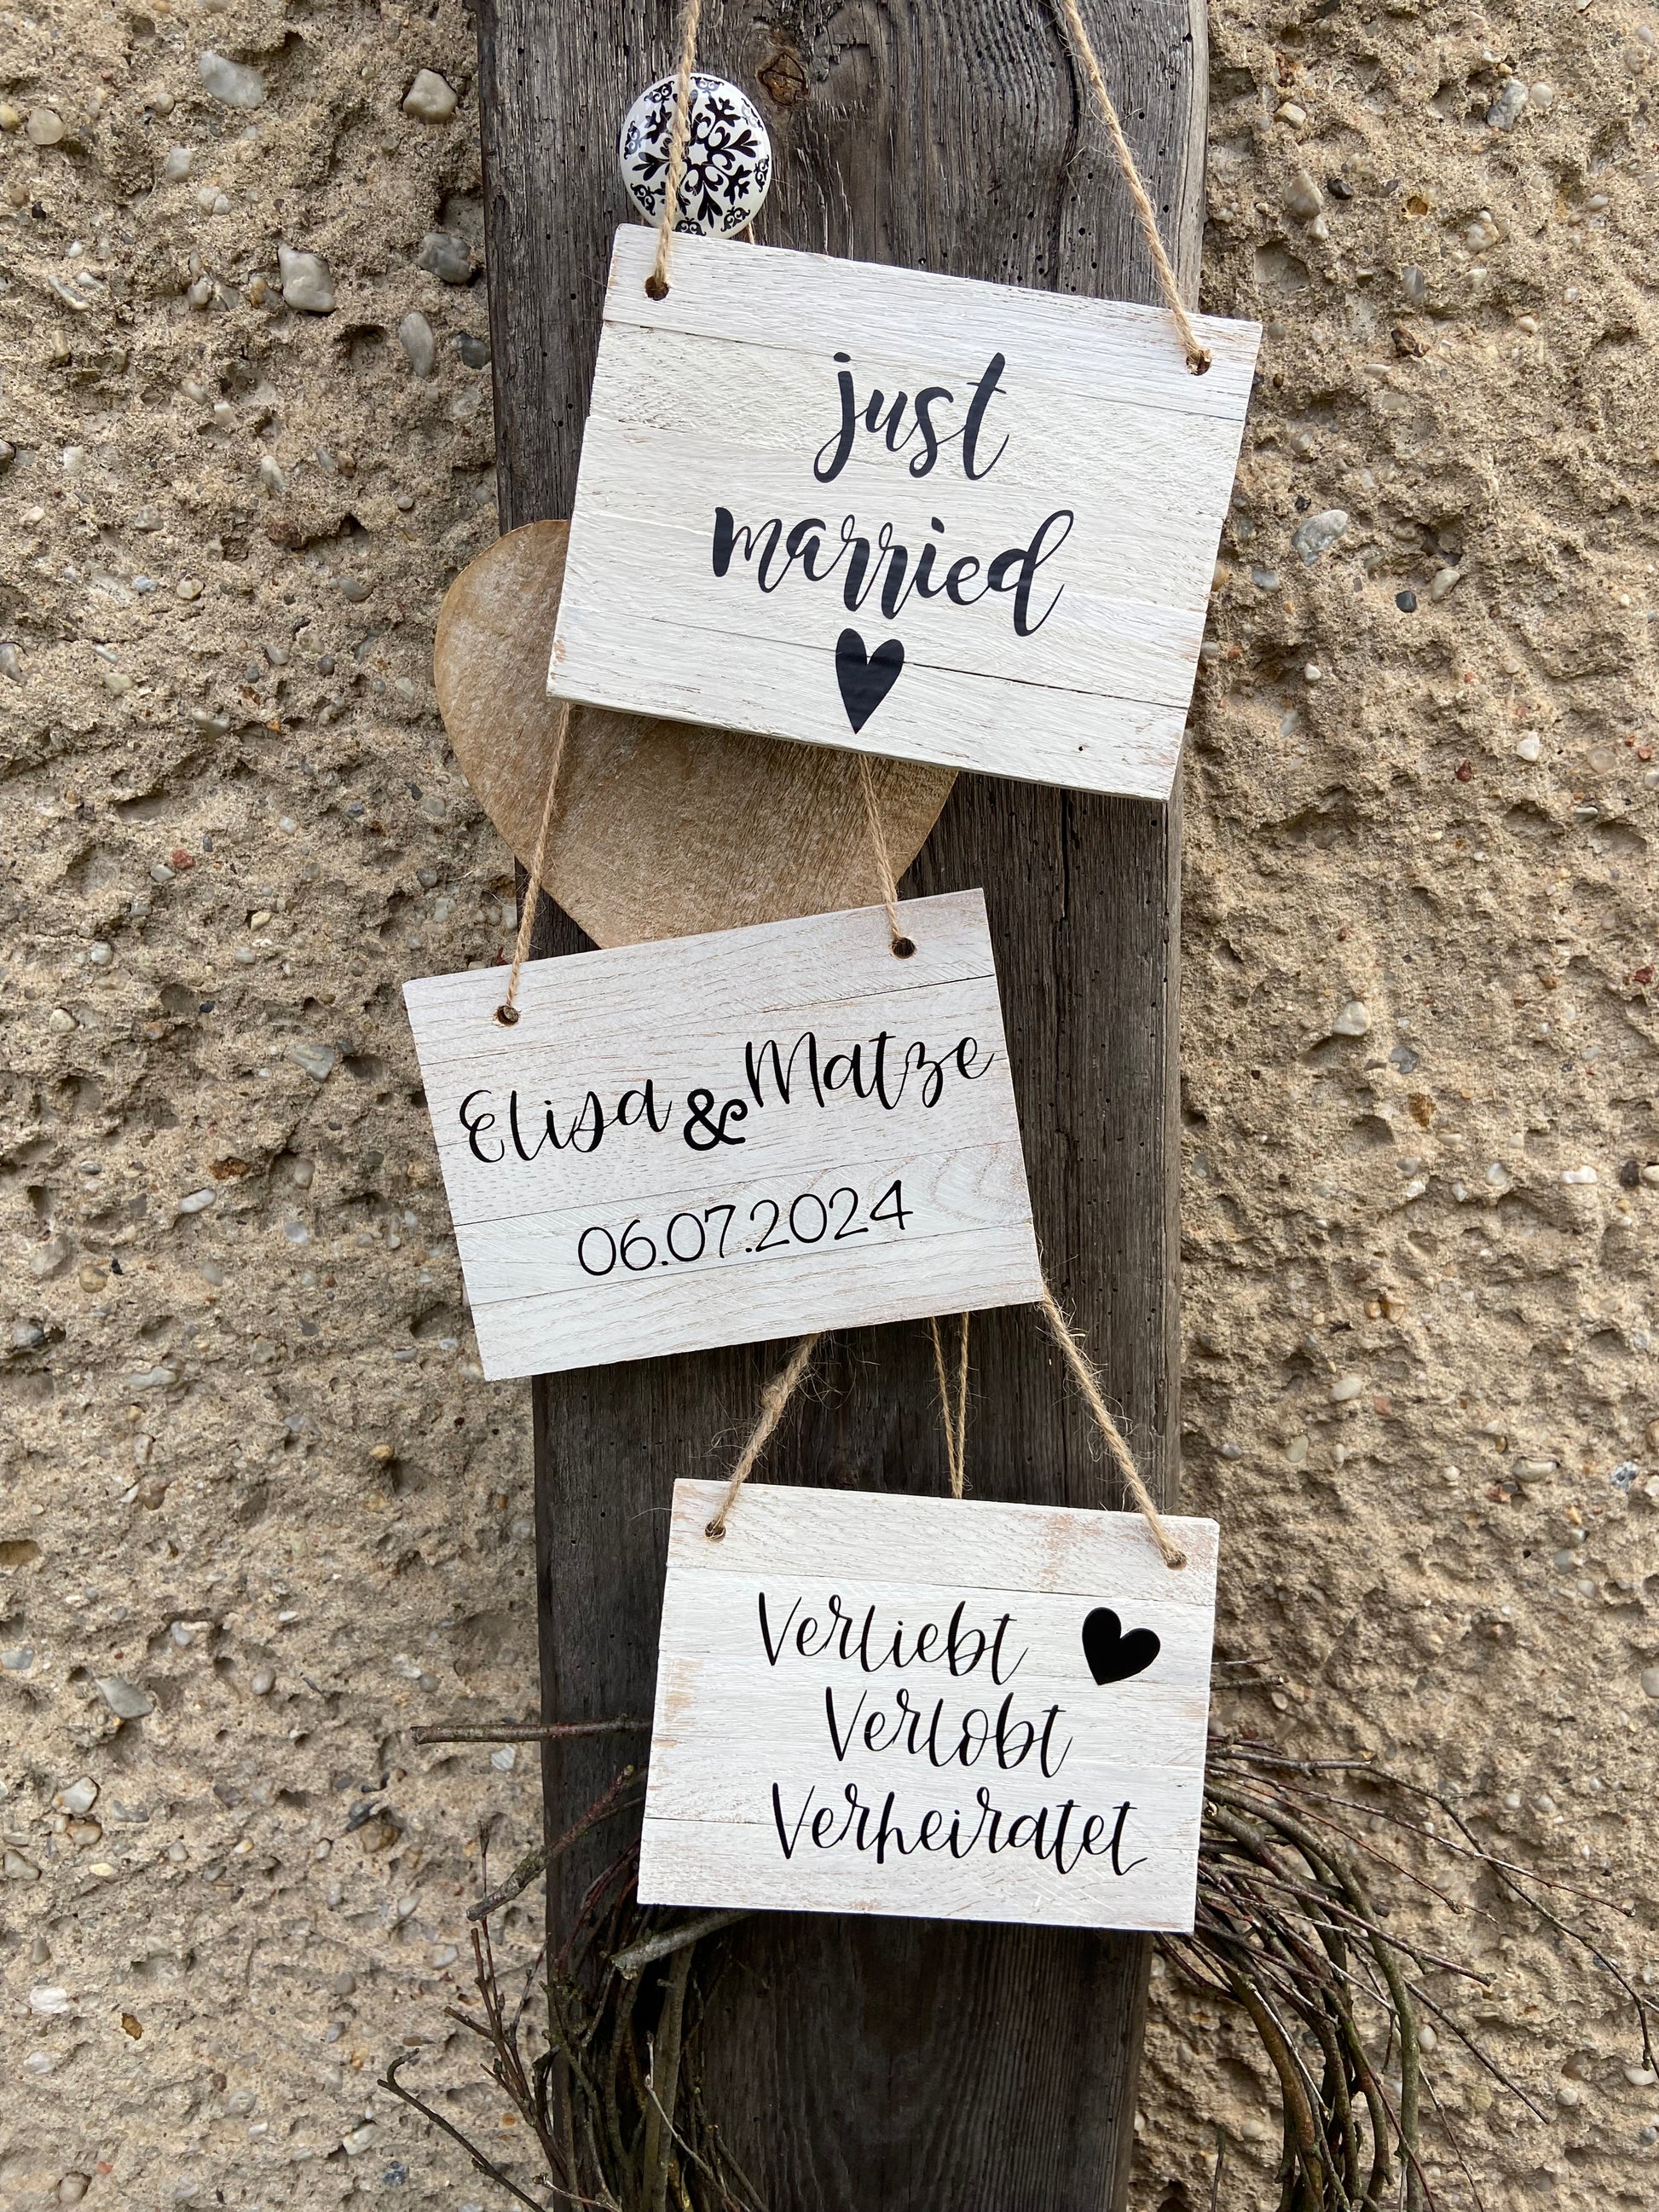 just
married
Elisa & Matze
06.07.2024
Verliebt
Verlobt
Verheiratet